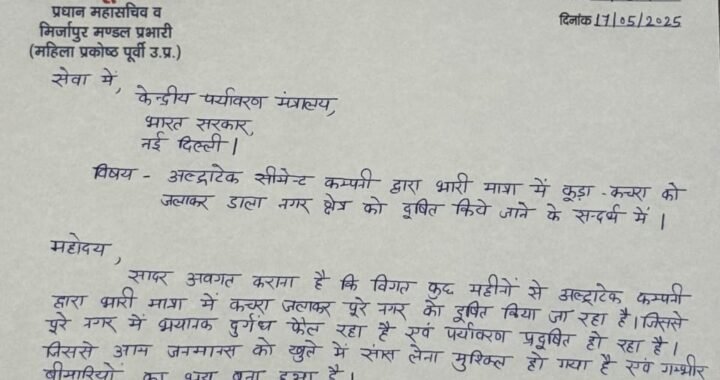 प्रधान महासचिव व
मिर्जापुर मण्डल प्रभारी
(महिला प्रकोष्ठ पूर्वी उ.प्र.)
दिनांक 17/05/2025
सेवा में,
केन्द्रीय पर्यावरण मंत्रालय,
भारत सरकार,
नई दिल्ली।
विषय - अल्ट्राटेक सीमेन्ट कम्पनी द्वारा भारी मात्रा में कूड़ा-कचरा को
जलाकर डाला नगर क्षेत्र को दूषित किये जाने के सन्दर्भ में।
महोदय,
सादर अवगत कराना है कि विगत कुछ महीनों से अल्ट्राटेक कम्पनी
द्वारा भारी मात्रा में कचरा जलाकर पूरे नगर को दूषित किया जा रहा है। जिससे
पूरे नगर में भयानक दुर्गंध फैल रहा है एवं पर्यावरण प्रदूषित हो रहा है।
जिससे आम जनमानस को खुले में सांस लेना मुश्किल हो गया है एवं गम्भीर
बीमारियों का भय बना हुआ है।